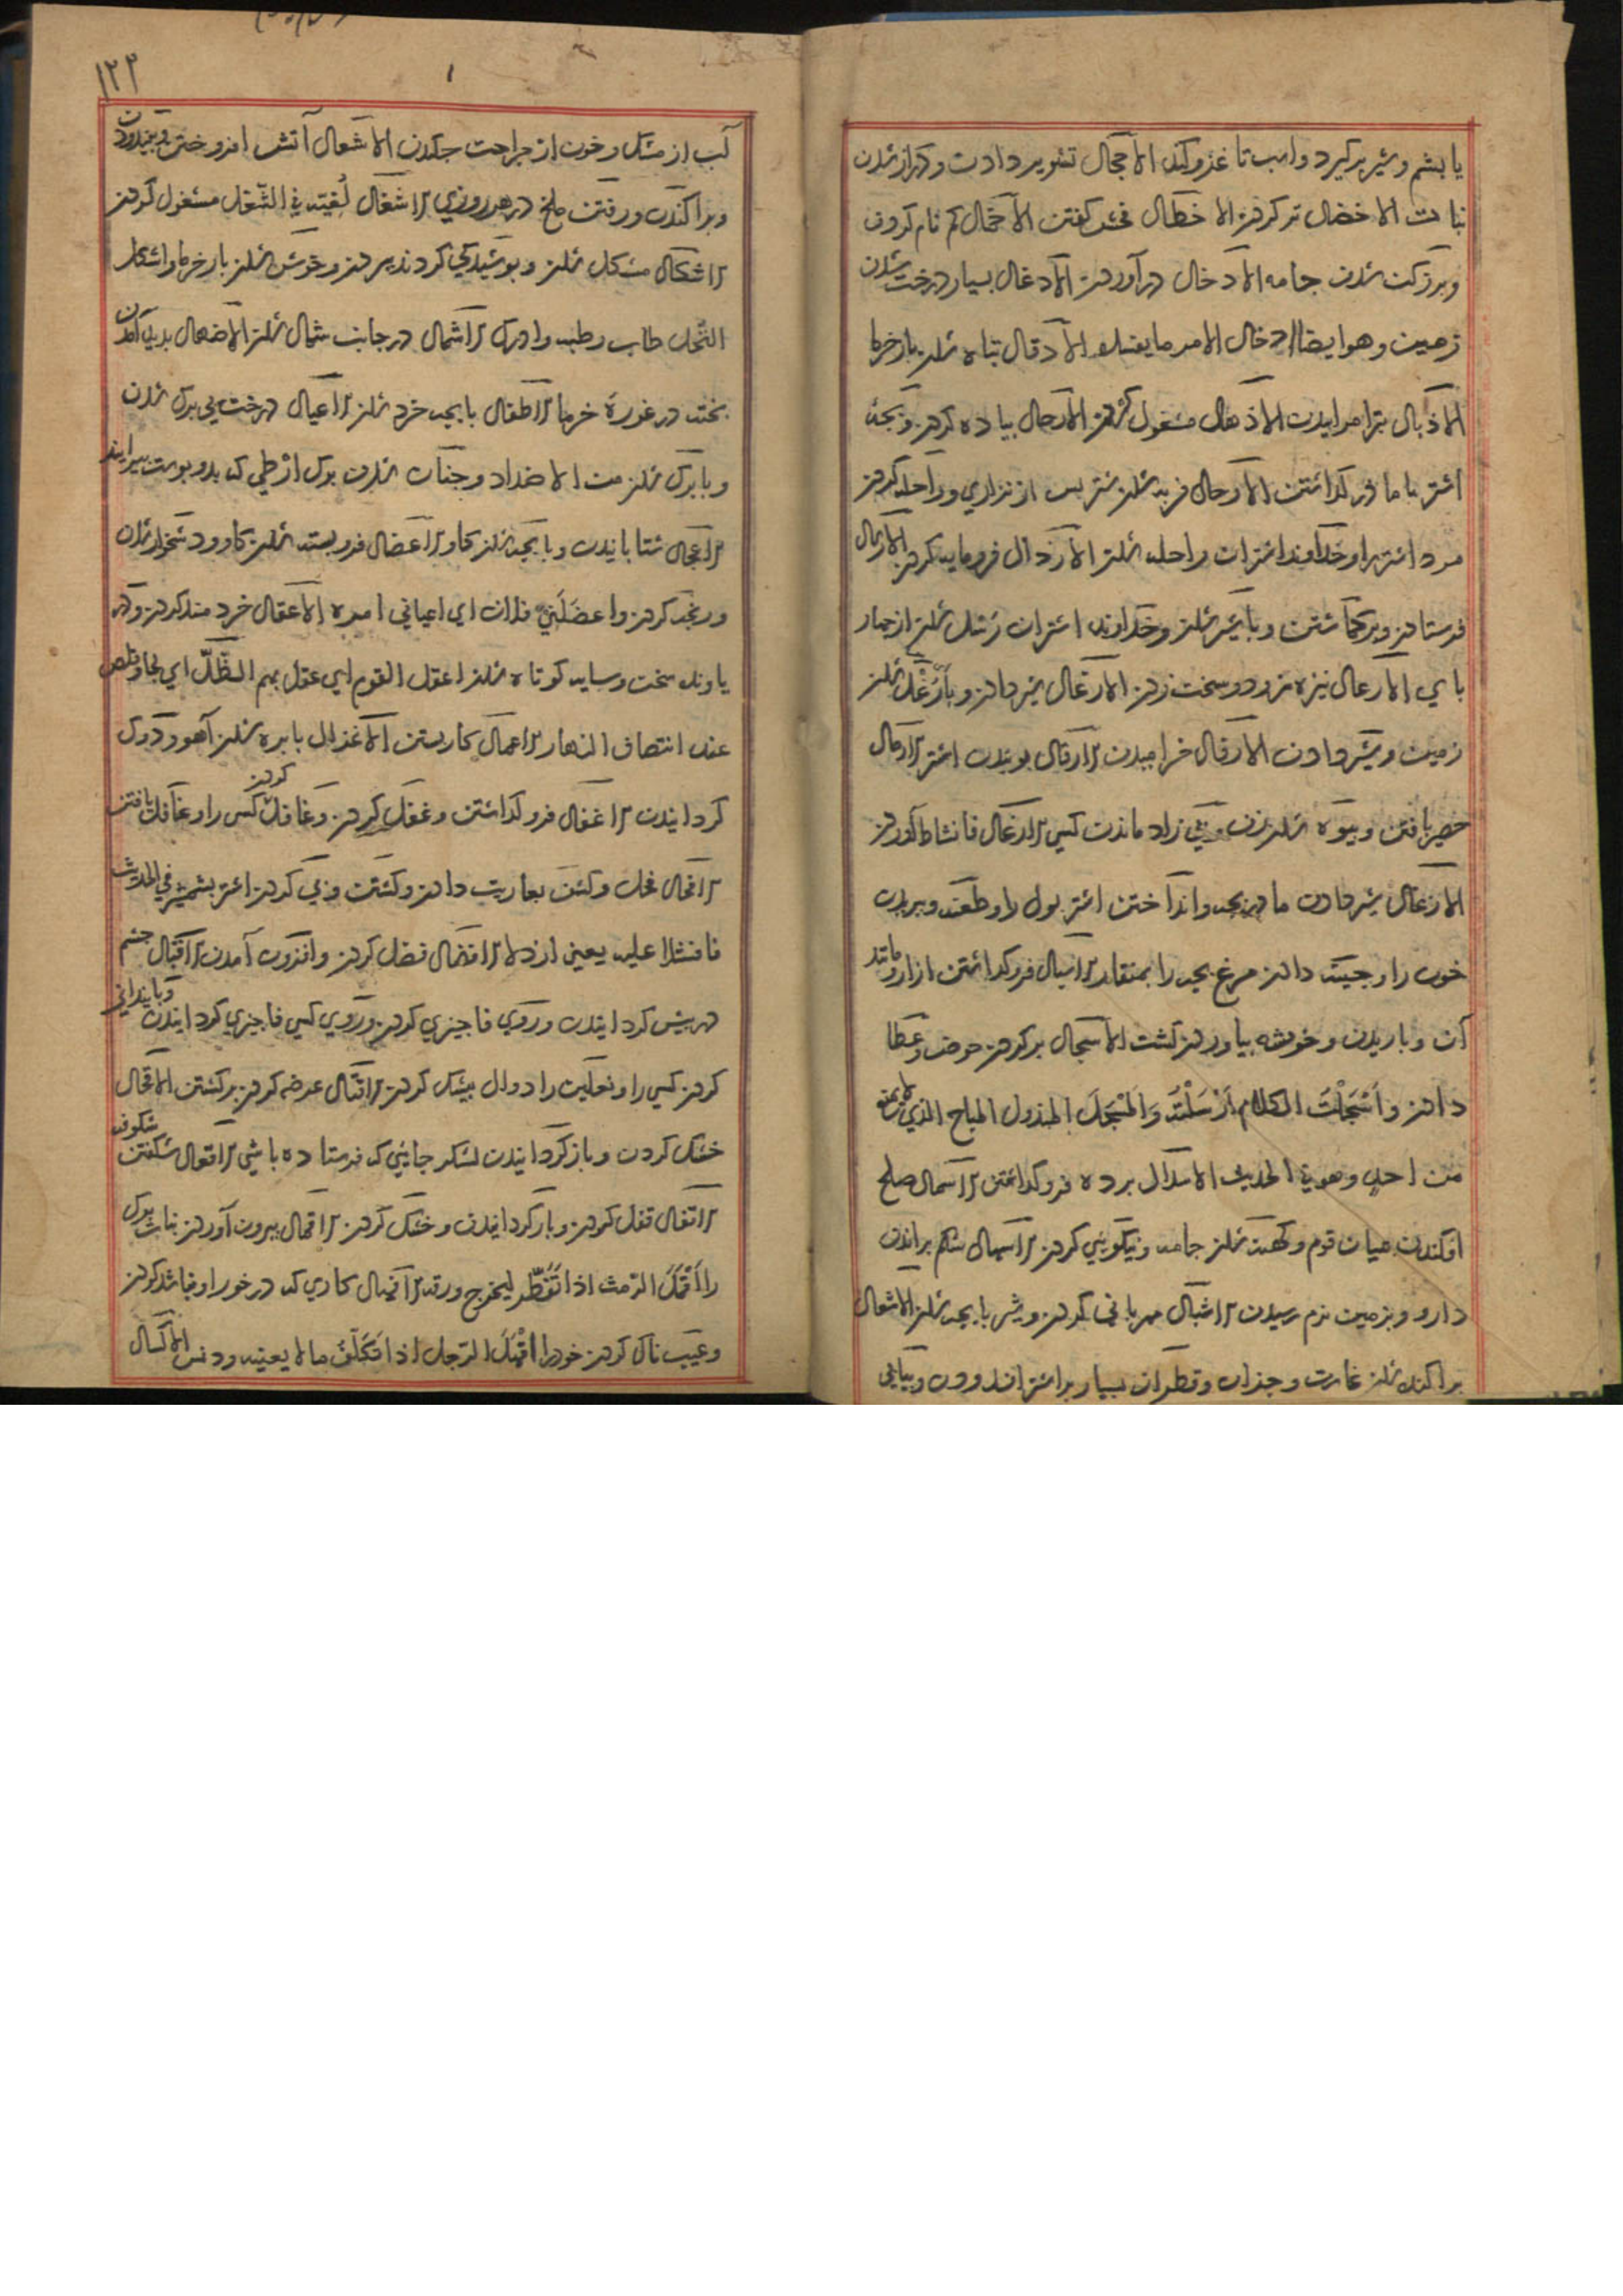 یا بشم و شیر برکیرد واسب تا غزو کند الاجحال تشویر دادن و دراز شدن
نبات الاخضال تر کردن الاخطال فحش کفتن الاخمال کم نام کردن
و بزرکن شدن جامه الادخال درآوردن الادغال بسیار درخت شدن
زمین وهو ایضا ادخال الامر ما یفسده الادقال تباه شدن بار خرما
الاذبال پژمرانیدن الاذهال مشغول کردن الارجال پیاده کردن و بچه
اشتر با مادر کذاشتن الارحال فربه شدن شتر پس از نزاری و راحله کردن
مرد اشتر را و خداوند اشتران راحله شدن الارذال فرومایه کردن الارسال
فرستادن و برکماشتن و با شیر شدن و خداوند اشتران رسل شدن از چهار
پای الارعال نیزه زود و سخت زدن الارغال شیر دادن و با رغل شدن
زمین و شیر دادن الارفال خرامیدن الارقال پوییدن اشتر الارمال
حصیر بافتن و بیوه شدن زن و بی زاد ماندن کس الازعال فا نشاط آوردن
الازغال شیر دادن مادر بچه و انداختن اشتر بول را و طعنه و بریدن
خون را و جینه دادن مرغ بچه را بمنقار الاسبال فروکذاشتن ازار و مانند
آن و باریدن و خوشه بیاوردن کشت الاسجال پر کردن حوض و عطا
دادن و اَسْجَلْتُ الکلام اَرْسَلْتُه وَالمُسْجَل المبذول المباح الذی لا یمنع
من احد وهو فی الحدیث الاسدال پرده فروکذاشتن الاسمال صلح
افکندن میان قوم و کهنه شدن جامه و نیکویی کردن الاسهال شکم براندن
دارو و بزمین نرم رسیدن الاشبال مهربانی کردن و شیر با بچه شدن الاشعال
پراکنده شدن غارت و جز آن و قطران بسیار بر اشتر اندودن و بیاپی
۱۲۳
آب از مشک و خون از جراحت چکیدن الاشعال آتش افروختن و
و پراکندن و رفتن ملخ در هر روزی الاشغال لُغیّه فی الشَّغل مشغول کردن
الاشکال مشکل شدن و پوشیدکی کردن و خوش شدن بار خرما و اشکل
النخل طاب رطبه وادرک الاشمال در جانب شمال شدن الاضهال پدید آمدن
پخته در غورۀ خرما الاطفال با بچه خرد شدن الاعبال درخت بی برک شدن
و با برک شدن من الاضداد و جنان شدن برک ارطی که بدو پوست پیرایند
الاعجال شتابانیدن و با بچه شدن کاو الاعضال فروبسته شدن کار و دشخوار شدن
و رنجه کردن و اعضَلَنی فلان ای اعیانی امره الاعقال خردمند کردن و در
پاوند سخت و سایه کوتاه شدن اعقل القوم ای عقل بهم الظّلّ ای لجا وقلص
عند انتصاف النهار الاعمال کار بستن الاغزال با بره شدن آهو و دوک
کردانیدن الاغفال فروکذاشتن و غفل کردن و غافل کردن کس را و غافل یافتن
الافحال فحل و کشن بعاریت دادن و کشتن و پی کردن اشتر بشمشیر فی الحدیث
فافشلا علیه یعنی الافضال فضل کردن و افزون آمدن الاقبال چشم
درپیش کردانیدن و روی فا چیزی کردن و روی کسی فا چیزی کردانیدن
کردن کسی را و نعلین را دوال پیش کردن الاقتال عرضه کردن برکشتن الاقحال
خشک کردن و بازکردانیدن لشکر جایی که فرستاده باشی الاقعال شکفتن شکوفه
الاقفال قفل کردن و بازکردانیدن و خشک کردن الاقمال بیرون آوردن نبات برک
را اَقْمَلَ الرمث اذا تَفَطَّر لیخرج ورقه کاری که درخور او نباشد کردن
و عیب ناک کردن خود را الرَّجل اذا تَکَلَّفَ ما لا یعنیه ودنس الاکسال